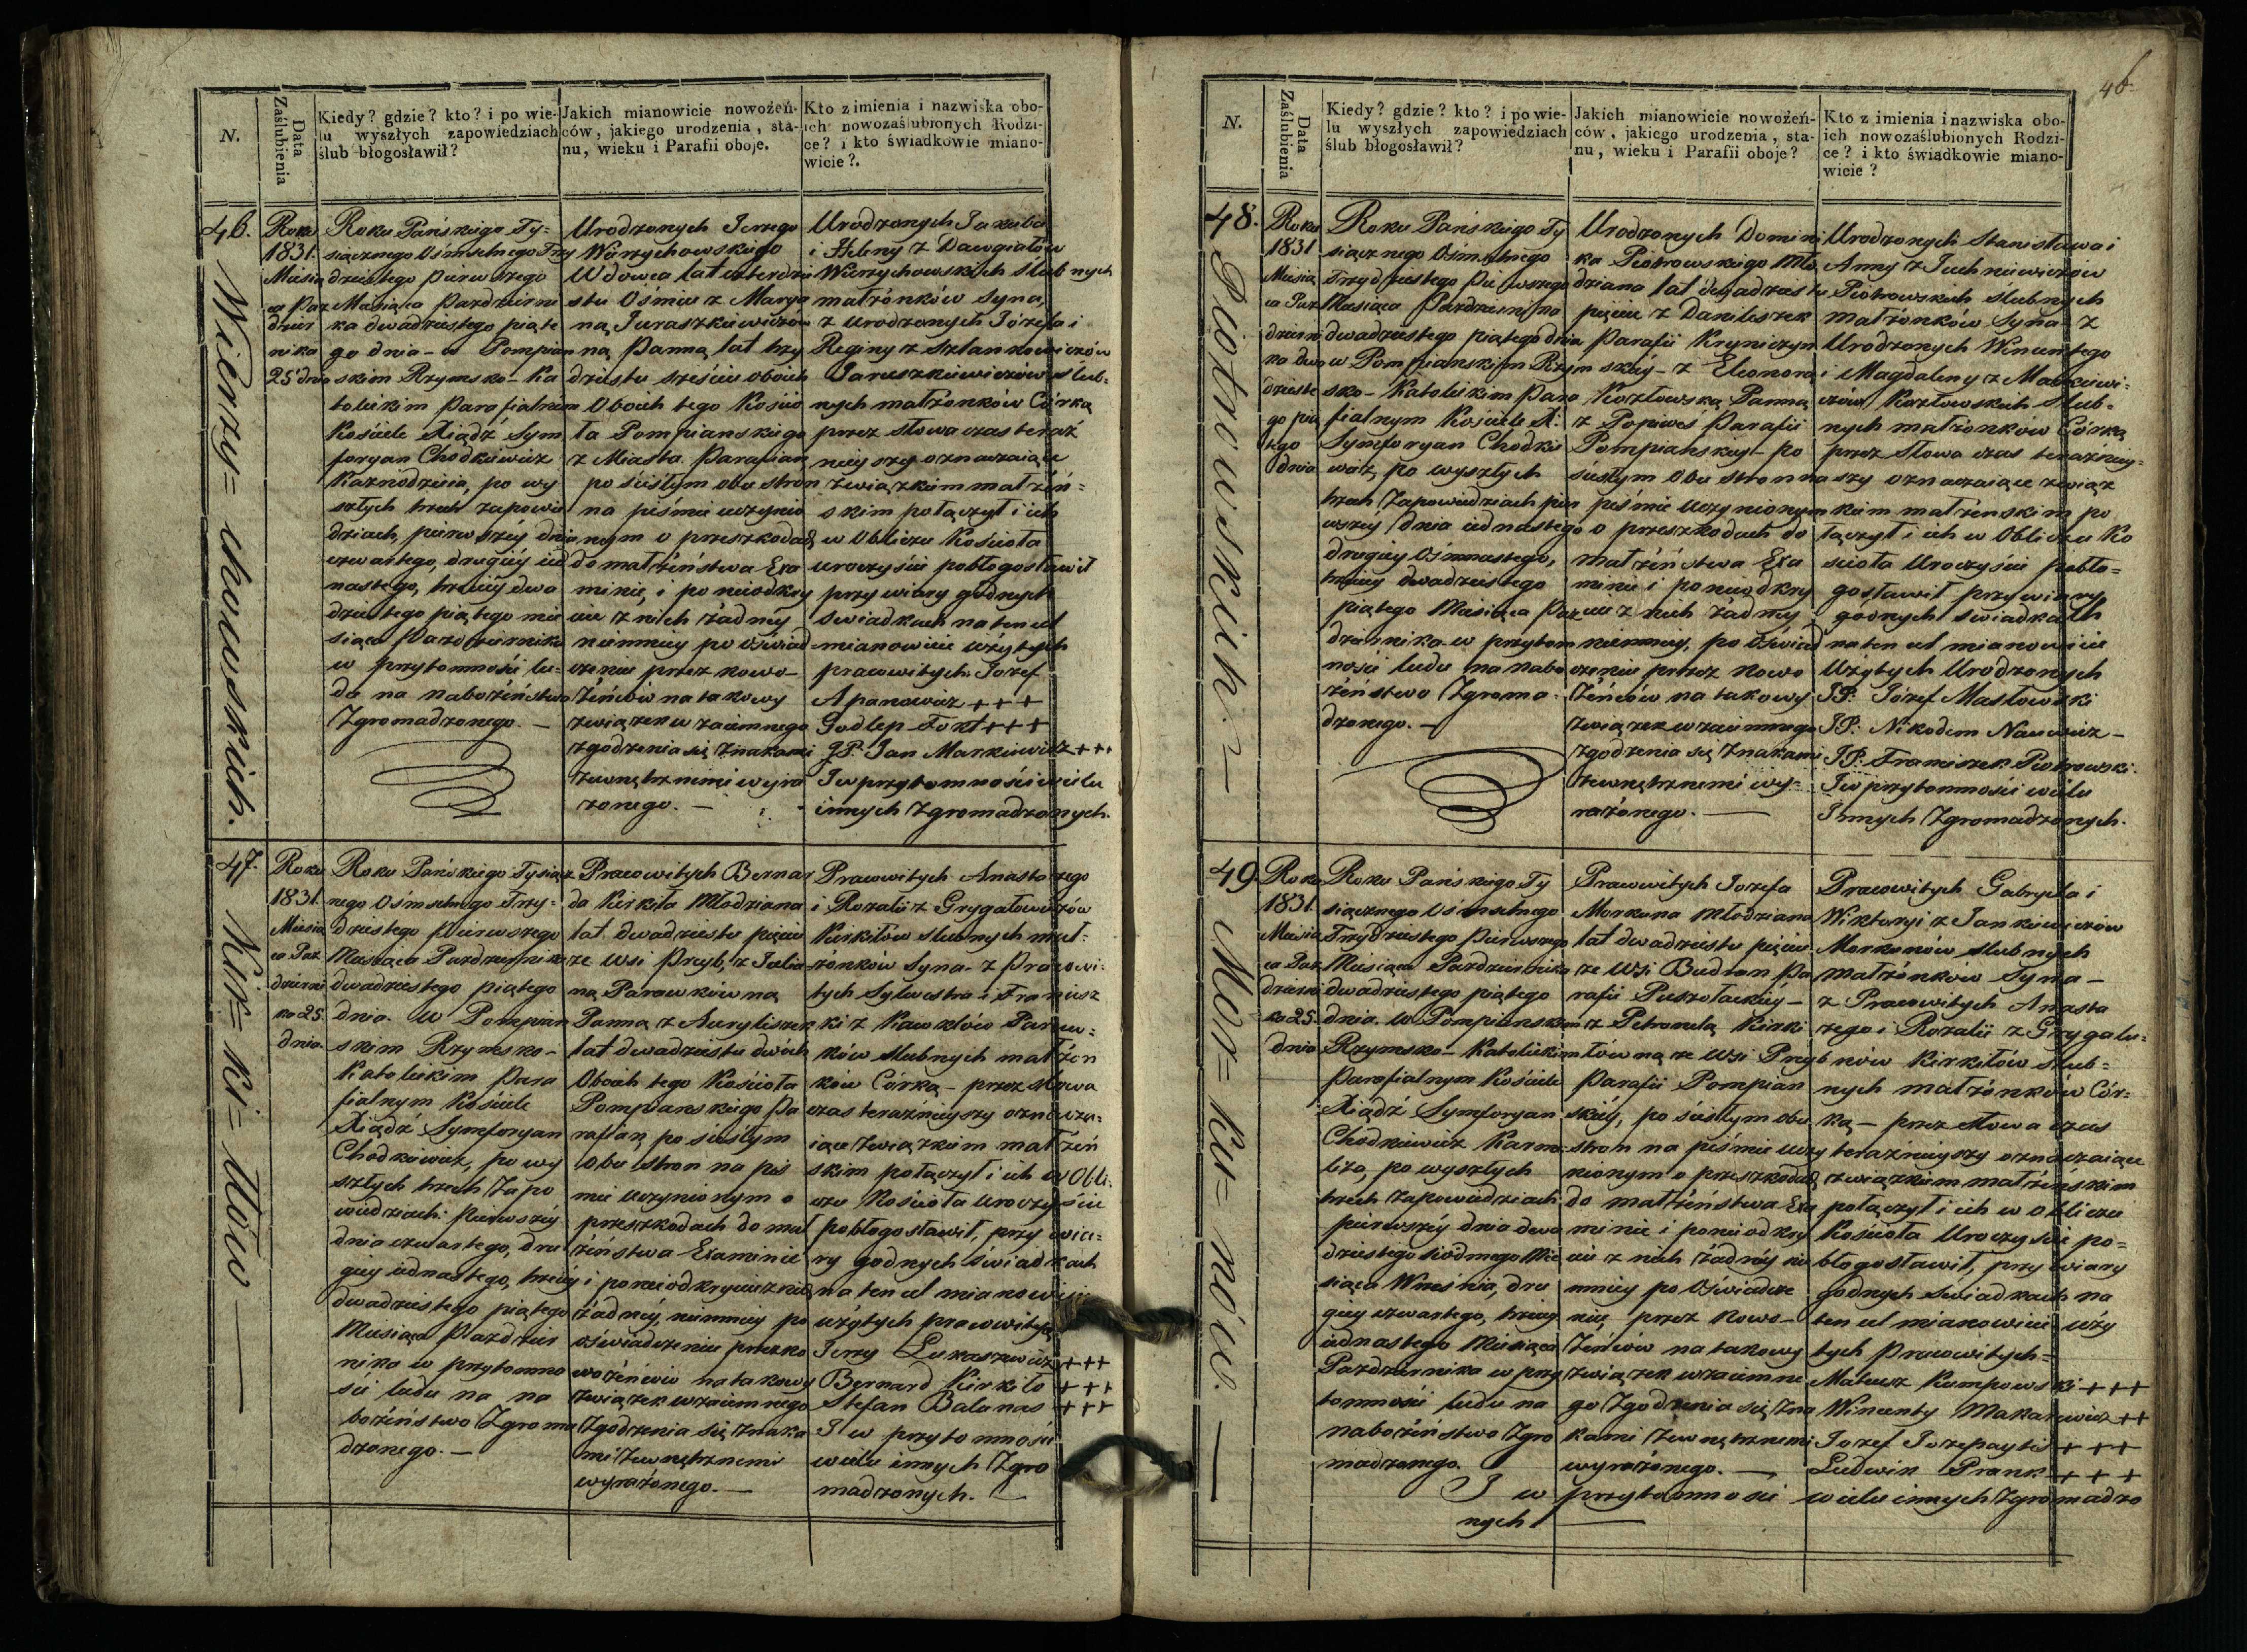 N.
Data Zaślubienia
Kiedy? gdzie? kto? i po wie-
lu wyszłych zapowiedziach
ślub błogosławił?
Jakich mianowicie nowożeń-
ców, jakiego urodzenia, sta-
nu, wieku i Parafii oboje.
Kto z imienia i nazwiska obo-
ich nowozaślubionych Rodzi-
ce? i kto świadkowie miano-
wicie?.
46.
Wierzy= chowskich.
Roku
1831.
Miesią
ca Paz
dzier
nika
25 dnia
Roku Pańskiego Ty=
siącznego Ośmsetnego Trzy
dziestego pierwszego
Miesiąca Pazdzierni
ka dwadziestego piąte
go dnia - w Pompian
skim Rzymsko - Ka
tolickim Parafialnym
Kościele Xiądź Sym
foryan Chodkiewicz
Kaznodzieia, po wy
szłych trzech zapowie
dziach, pierwszéy dnia
czwartego, drugiéy ied
nastego, trzeciéy dwa
dziestego piątego mie
siąca Pazdziernika
w przytomności lu=
du na nabożeństwo
Zgromadzonego. —
Urodzonych Jerzego
Wierzychowskiego
Wdowca lat czterdzie
stu Ośmiu z Marya
ną Juraszkiewiczów
ną Panną lat trzy
dziestu sześciu oboich
Oboich tego Kościo
ła Pompianskiego
z Miasta Parafian
po ścisłym obu stron
na piśmie uczynio
nym o przeszkodach
do małżeństwa Exa
minie, i po nieodkry
ciu z nich żadnéy
niemniéy po oświad=
czeniu przez nowo-
żeńców na takowy
związek wzaiemnego
zgodzenia się znakami
zewnętrznemi wyra
żonego. —
Urodzonych Jakuba
i Heleny z Dawgiałów
Wierzychowskich ślubnych
małżonków Syna,
z Urodzonych Józefa i
Reginy z Sztankowiczów
Jaruszkiewiczów ślub=
nych małżonków Córką
przez słowa czas teraź
niéyszy oznaczaiące
związkiem małżeń=
skim połączył i ich
w Obliczu Kościoła
uroczyście pobłogosławił
przy wiary godnych
świadkach na ten cel
mianowicie użytych
pracowitych Jozef
Apanowicz +++
Godlep Fokt +++
JP. Jan Markiewicz +++
I w przytomności wielu
innych Zgromadzonych.
47.
Kir= ki= łów —
Roku
1831.
Miesią
ca Paz
dzierni
ka 25.
dnia.
Roku Pańskiego Tysiącz
nego Ośmsetnego Trzy=
dziestego pierwszego
Miesiąca Pazdziernika
dwadziestego piątego
dnia. w Pompian
skim Rzymsko-
Katolickim Para
fialnym Kościele
Xiądź Symforyan
Chodkiewicz, po wy
szłych trzech Zapo
wiedziach: pierwszéy
dnia czwartego, dru
giéy iednastego, trzeciéy
dwadziestego piątego
Miesiąca Pazdzier
nika w przytomno
ści ludu na na
bożeństwo Zgroma
dzonego. —
Pracowitych Bernar
da Kirkiła Młodziana
lat dwadziestu pięciu
ze Wsi Przyb, z Julia
ną Parawkówną
Panną z Auryliszek
lat dwadziestu dwóch
Oboich tego Kościoła
Pompianskiego Pa
rafian po ścisłym
obu stron na piś
mie uczynionym o
przeszkodach do mał
żeństwa Examinie
i po nieodkryciu z nich
żadnéy, niemniéy po
oświadczeniu przez no
wożeńców na takowy
związek wzaiemnego
Zgodzenia się znaka
mi zewnętrznemi
wyrażonego. —
Pracowitych Anastazego
i Rozalii z Grygałowiczów
Kirkiłów ślubnych mał=
żonków Syna - z Pracowi=
tych Sylwestra i Francisz
ki z Kawkłów Paraw=
ków ślubnych małżon
ków Córką - przez słowa
czas teraźniéyszy oznacza=
iące związkiem małżeń
skim połączył i ich w Obli=
czu Kościoła uroczyście
pobłogosławił, przy wia=
ry godnych świadkach
na ten cel mianowicie
użytych pracowitych
Jerzy Łukaszewicz +++
Bernard Kirkiło +++
Stefan Balunas +++
I w przytomności
wielu innych Zgro
madzonych. —
46
N.
Data Zaślubienia
Kiedy? gdzie? kto? i po wie-
lu wyszłych zapowiedziach
ślub błogosławił?
Jakich mianowicie nowożeń-
ców, jakiego urodzenia, sta-
nu, wieku i Parafii oboje?
Kto z imienia i nazwiska obo-
ich nowozaślubionych Rodzi-
ce? i kto świadkowie miano-
wicie?
48.
Piotrowskich. —
Roku
1831
Miesią
ca Paz
dzierni
ka dwa
dzieste
go pią
tego
dnia
Roku Pańskiego Ty
siącznego Ośmsetnego
Trzydziestego Pierwszego
Miesiąca Pazdziernika
dwadziestego piątego dnia
w Pompianskim Rzym
sko - Katolickim Para
fialnym Kościele X.
Symforyan Chodkie
wicz, po wyszłych
trzech Zapowiedziach pier
wszéy dnia iednastego
drugiéy Ośmnastego,
trzeciéy dwadziestego
piątego Miesiąca Paz
dziernika w przytom
ności ludu na nabo
żeństwo Zgroma=
dzonego. —
Urodzonych Domini
ka Piotrowskiego Mło
dziana lat dwadziestu
pięciu z Daniliszek
Parafii Kryniczyn
skiéy - z Eleonorą
Kozłowską Panną
z Popiweś Parafii
Pompianskiéy - po
ścisłym Obu stron na
piśmie uczynionym
o przeszkodach do
małżeństwa Exa
minie i po nieodkry
ciu z nich żadnéy
niemniéy, po Oświad
czeniu przez nowo
żeńców na takowy
związek wzaiemnego
Zgodzenia się znakami
zewnętrznemi wy=
rażonego. —
Urodzonych Stanisława i
Anny z Juchniewiczów
Piotrowskich ślubnych
małżonków Syna z
Urodzonych Wincentego
i Magdaleny z Mackiewi=
czów Kozłowskich ślub=
nych małżonków Córką
przez słowa czas teraźniéy=
szy oznaczaiące związ
kiem małżenskim po
łączył i ich w Obliczu Ko
ścioła Uroczyście pobło=
gosławił przy wiary
godnych świadkach
na ten cel mianowicie
Użytych Urodzonych
JP: Józef Masłowski
JP: Nikodem Nacewicz -
JP: Franciszek Piotrowski.
I w przytomności wielu
Innych Zgromadzonych.
49.
Mor= ku= nów. —
Roku
1831.
Miesią
ca Paz
dzierni
ka 25.
dnia
Roku Pańskiego Ty
siącznego Ośmsetnego
Trzydziestego Pierwszego
Miesiąca Pazdziernika
dwadziestego piątego
dnia. w Pompianskim
Rzymsko - Katolickim
Parafialnym Kościele
Xiądź Symforyan
Chodkiewicz Karme
lita, po wyszłych
trzech Zapowiedziach
pierwszéy dnia dwa
dziestego siódmego Mie
siąca Września, dru
giéy czwartego, trzeciéy
iednastego Miesiąca
Pazdziernika w przy
tomności ludu na
nabożeństwo Zgro
madzonego.
Pracowitych Jozefa
Morkuna Młodziana
lat dwadziestu pięciu
ze Wsi Budran Pa
rafii Puszołackiéy -
z Petronelą Kirki
łówną ze Wsi Przyb
Parafii Pompian
skiéy, po ścisłym obu
stron na piśmie uczy
nionym o przeszkodach
do małżeństwa Exa
minie i po nieodkry
ciu z nich żadnéy nie
mniéy po Oświadcze
niu przez Nowo-
żeńców na takowy
związek wzaiemne
go Zgodzenia się zna
kami zewnętrznemi
wyrażonego. —
Pracowitych Gabryela i
Wiktoryi z Jankiewiczów
Morkunów ślubnych
małżonków Syna -
z Pracowitych Anasta
zego i Rozalii z Grygalu=
nów Kirkiłów ślub=
nych małżonków Cór=
ką - przez słowa czas
teraźniéyszy oznaczaiące
związkiem małżeńskim
połączył i ich w obliczu
Kościoła Uroczyście po=
błogosławił, przy wiary
godnych świadkach na
ten cel mianowicie uży
tych Pracowitych =
Mateusz Kumpowski +++
Wincenty Makarewicz ++
Jozef Jozepaytis +++
Ludwik Prank +++
I w przytomności wielu innych Zgromadzo
nych —